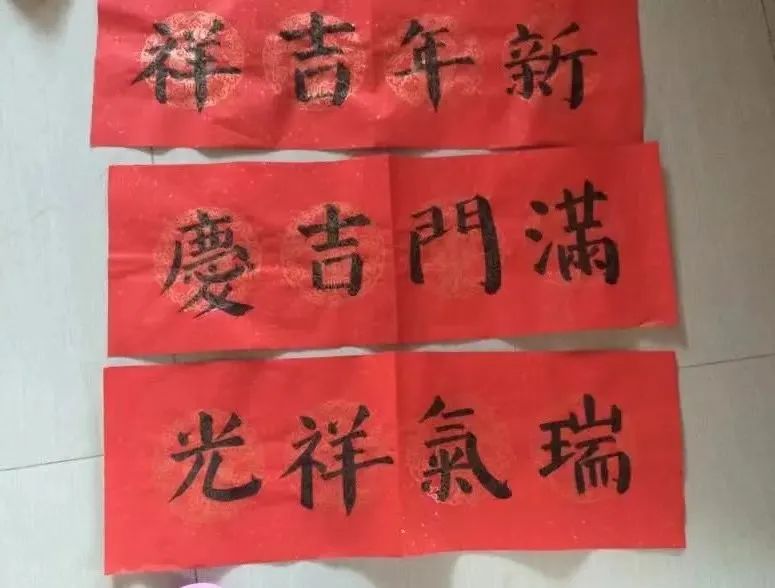 新年吉祥
滿門吉慶
瑞氣祥光